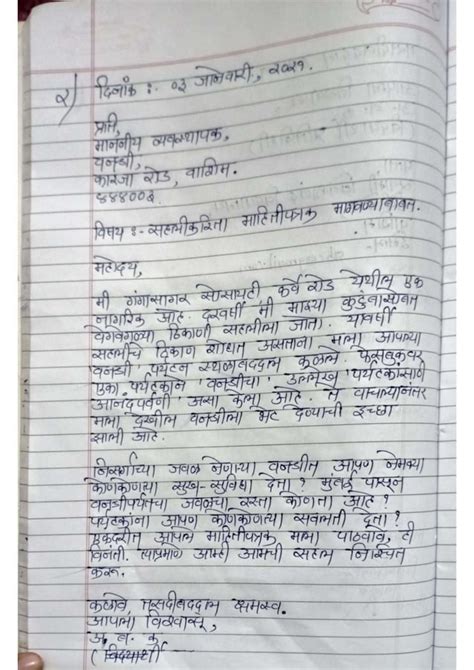 २) दिनांक :- ०३ जानेवारी, २०२१.
प्रति,
माननीय व्यवस्थापक,
वनश्री,
कारंजा रोड, वाशिम.
४४४००३
विषय :- सहलीकरिता माहितीपत्रक मागवण्याबाबत.
महोदय,
मी गंगासागर सोसायटी कर्वे रोड येथील एक
नागरिक आहे. दरवर्षी मी माझ्या कुटुंबासोबत
वेगवेगळ्या ठिकाणी सहलीला जातो. यावर्षी
सहलीचे ठिकाण शोधत असताना मला आपल्या
वनश्री पर्यटन स्थळाबद्दल कळले. फेसबुकवर
एका पर्यटकाने 'वनश्रीचा' उल्लेख 'पर्यटकांसाठी
आनंदपर्वणी' असा केला आहे. ते वाचल्यानंतर
मला देखील वनश्रीला भेट देण्याची इच्छा
झाली आहे.
निसर्गाच्या जवळ नेणाऱ्या वनश्रीत आपण नेमक्या
कोणकोणत्या सुख-सुविधा देता? मुंबई पासून
वनश्रीपर्यंतचा जवळचा रस्ता कोणता आहे?
पर्यटकांना आपण कोणकोणत्या सवलती देता?
एकंदरीत आपले माहितीपत्रक मला पाठवावे, ही
विनंती. त्याप्रमाणे आम्ही आमची सहल निश्चित
करू.
कळावे, तसदीबद्दल क्षमस्व.
आपला विश्वासू,
अ. ब. क.
(विद्यार्थी